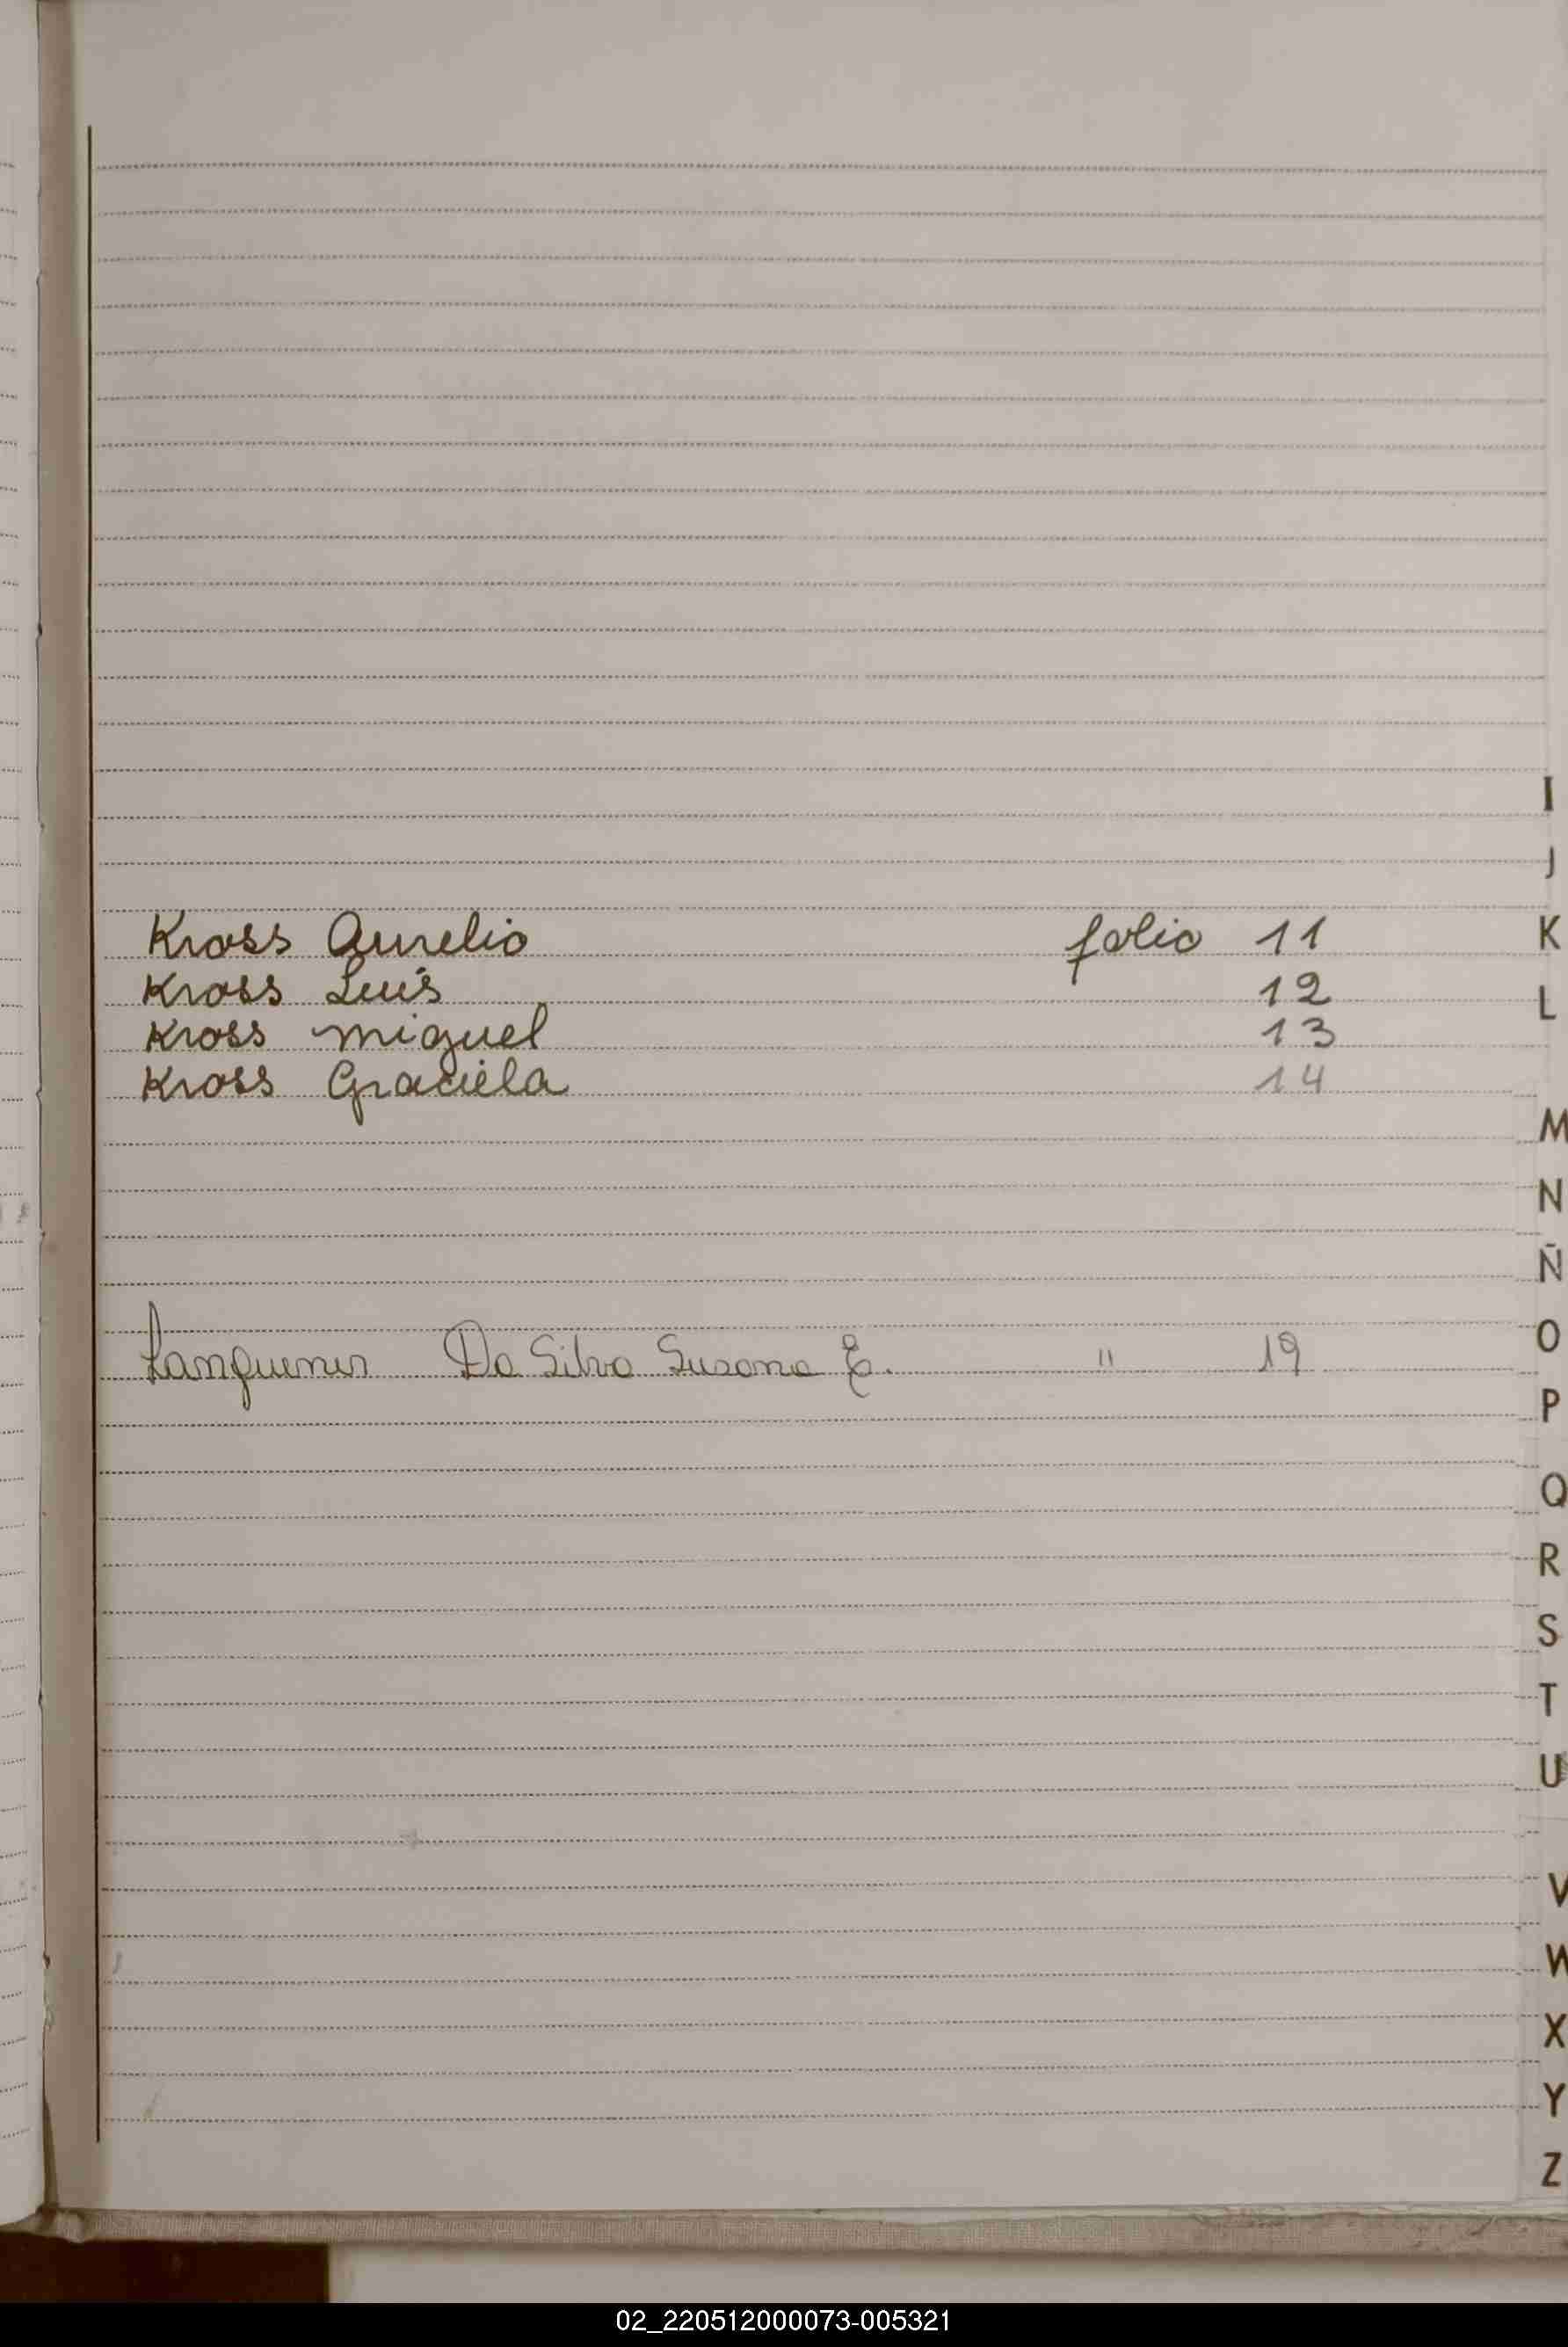 I
J
Kross Aurelio folio 11 K
Kross Luis 12 L
Kross Miguel 13
Kross Graciela 14
M
N
Ñ
O
Da Silva Susana E. " 19
P
Q
R
S
T
U
V
W
X
Y
Z
02_220512000073-005321